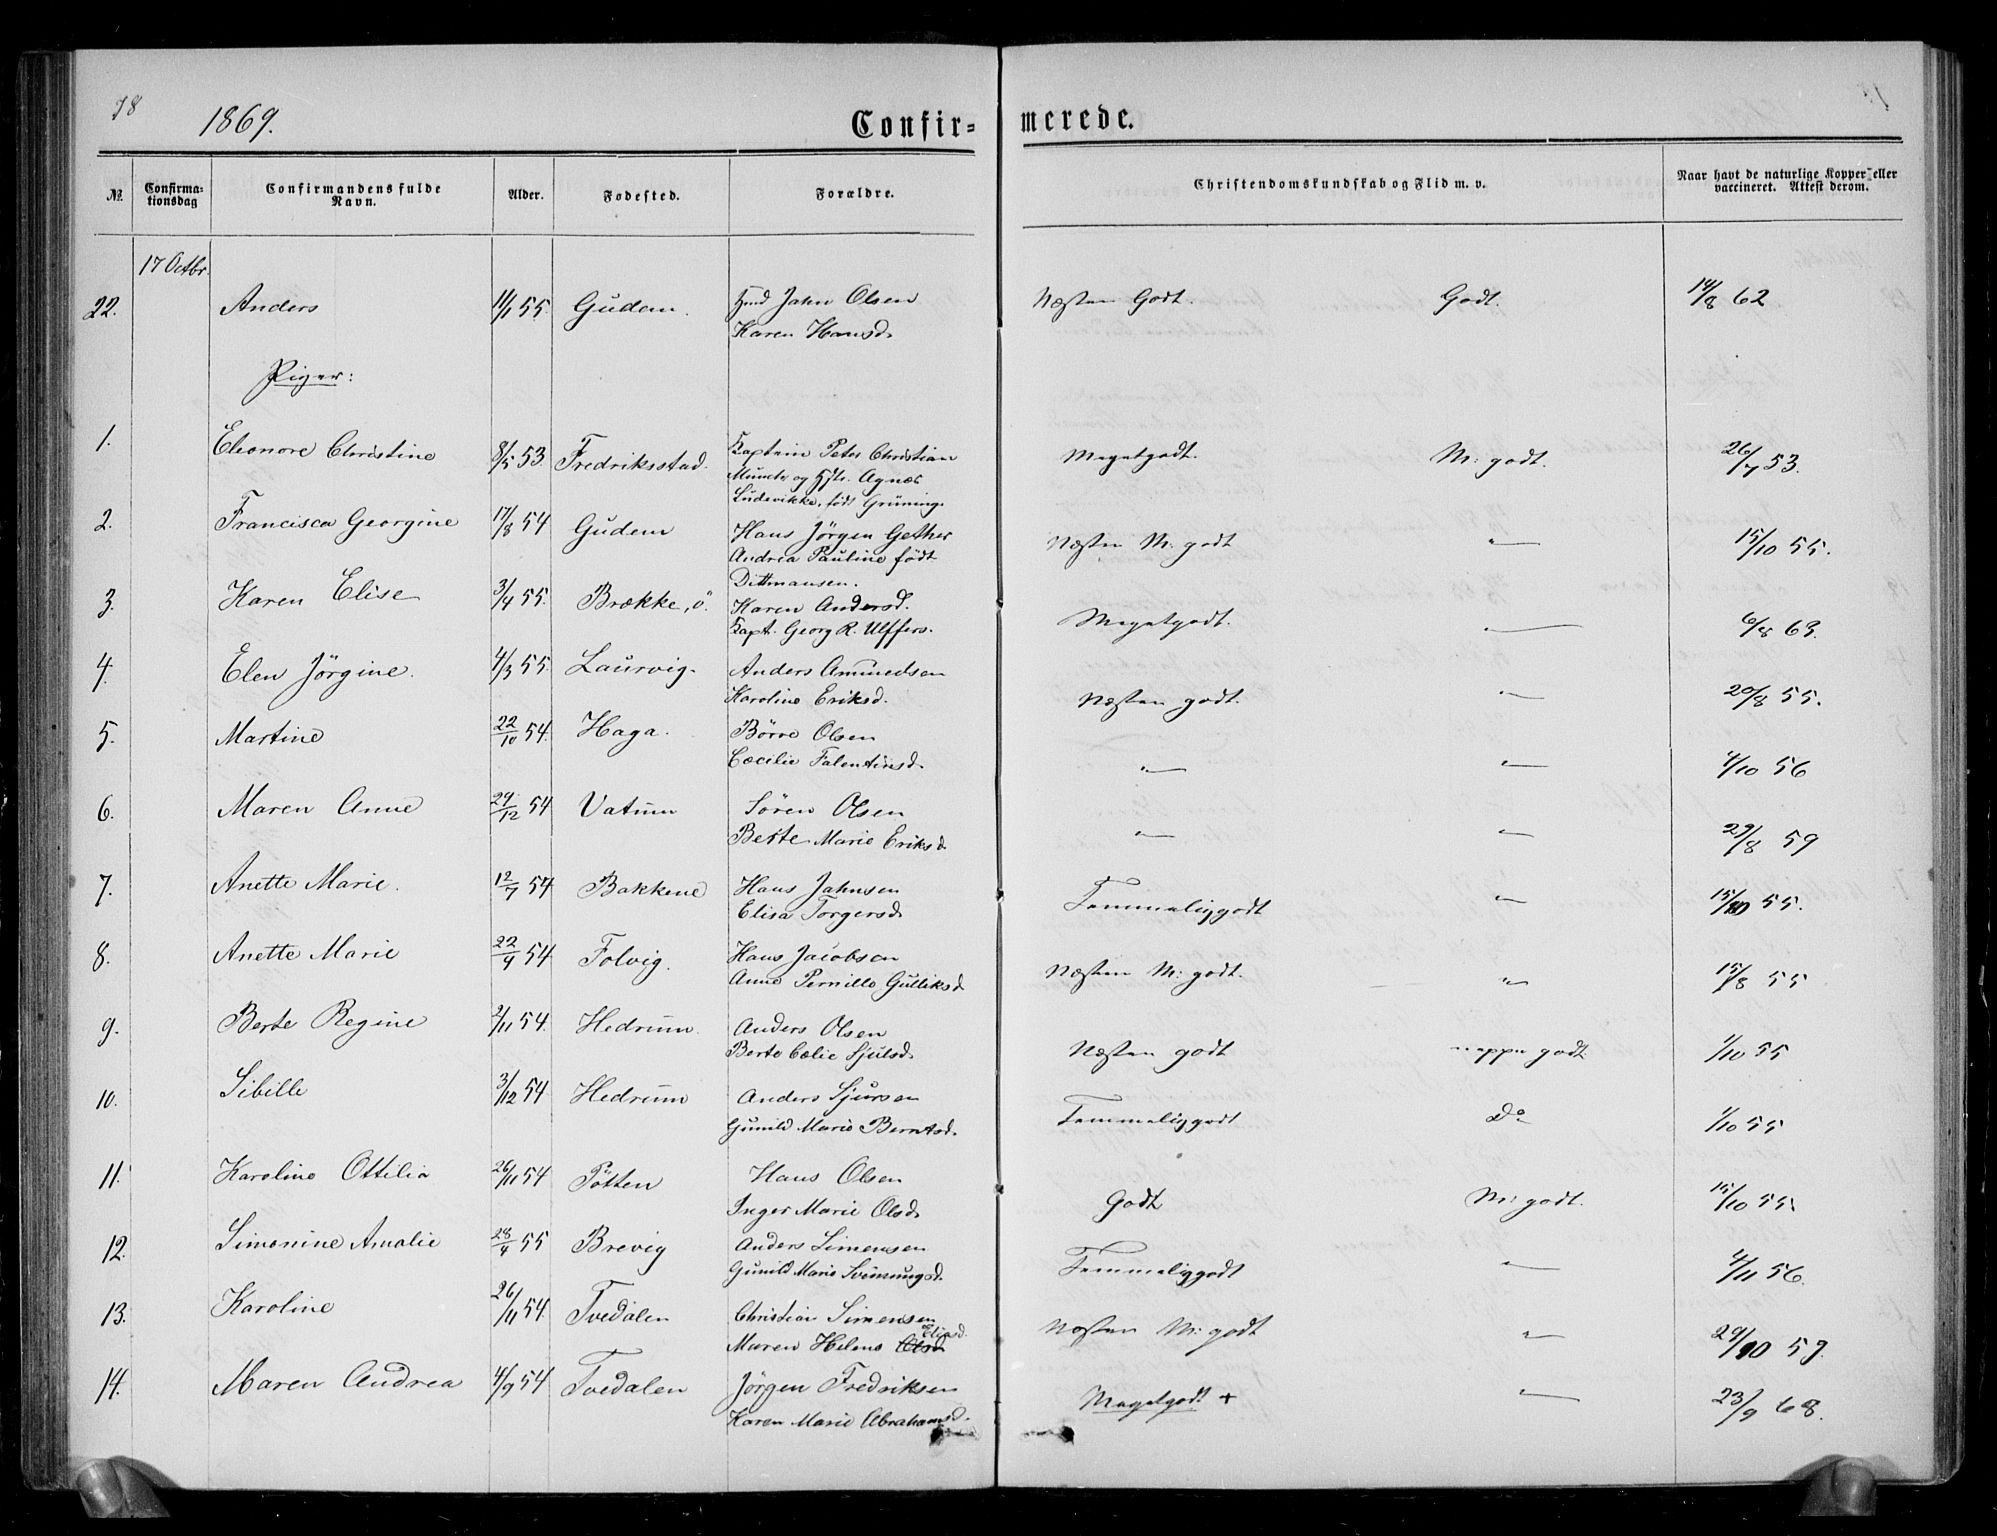 78
1869.
Confir=
merede.
№.
Confirma-
tionsdag
Confirmandens fulde
Navn.
Alder.
Fødested.
Forældre.
Christendomskundskab og Flid m. v.
Naar havt de naturlige Kopper eller
vaccineret. Attest derom.
17 Octbr.
22. Anders 11/1 55. Gudem. Jahn Olsen Næsten Godt. Godt. 14/8 62
Karen Hansd.
Piger:
1. Eleonore Christine 8/5 53. Fredriksstad. Kaptein Peter Christian Megetgodt. M: godt. 26/7 53.
Munch og Hst. Agnes
Ludevikke, født Grüning.
2. Francisca Georgine 17/8 54 Gudem Hans Jörgen Gether Næsten M: godt " 15/10 55.
Andrea Pauline født
Dittmansen.
3. Karen Elise 3/4 55. Brække, ö. Karen Andersd. Megetgodt. " 6/8 63.
Kapt. Georg R. Ulffers.
4. Elen Jörgine. 4/3 55. Laurvig. Anders Amundsen Næsten godt. " 20/8 55.
Karoline Eriksd.
5. Martine 22/10 54. Haga. Börre Olsen " " 4/10 56
Cæcilie Falentinsd.
6. Maren Anne 29/12 54 Vatum Sören Olsen " " 29/8 59
Berte Marie Eriksd.
7. Anette Marie. 12/7 54 Bakkene Hans Jahnsen Temmeliggodt " 15/10 55.
Elisa Torgersd.
8. Anette Marie 22/9 54 Folvig. Hans Jacobsen Næsten M: godt. " 15/8 55
Anne Pernille Gulliksd.
9. Berte Regine 2/11 54. Hedrum. Anders Olsen Næsten godt neppe godt 1/10 55
Berte Cælie Sjulsd.
10. Sibille 3/12 54 Hedrum Anders Sjursen Temmeliggodt Do 1/10 55
Gunild Marie Berntsd.
11. Karoline Ottilia 26/11 54 Pötten Hans Olsen Godt M: godt. 15/10 55.
Inger Marie Olsd.
12. Simonine Amalie 28/4 55 Brevig Anders Simensen Temmeliggodt " 4/11 56.
Gunild Marie Svennungsd.
13. Karoline 26/11 54. Tvedalen Christian Simensen Næsten M: godt " 29/10 59.
Eliasd.
Maren Helene Olsd.
14. Maren Andrea 4/9 54 Tvedalen Jörgen Fredriksen Megetgodt + " 23/9 68.
Karen Marie Abrahamsd.